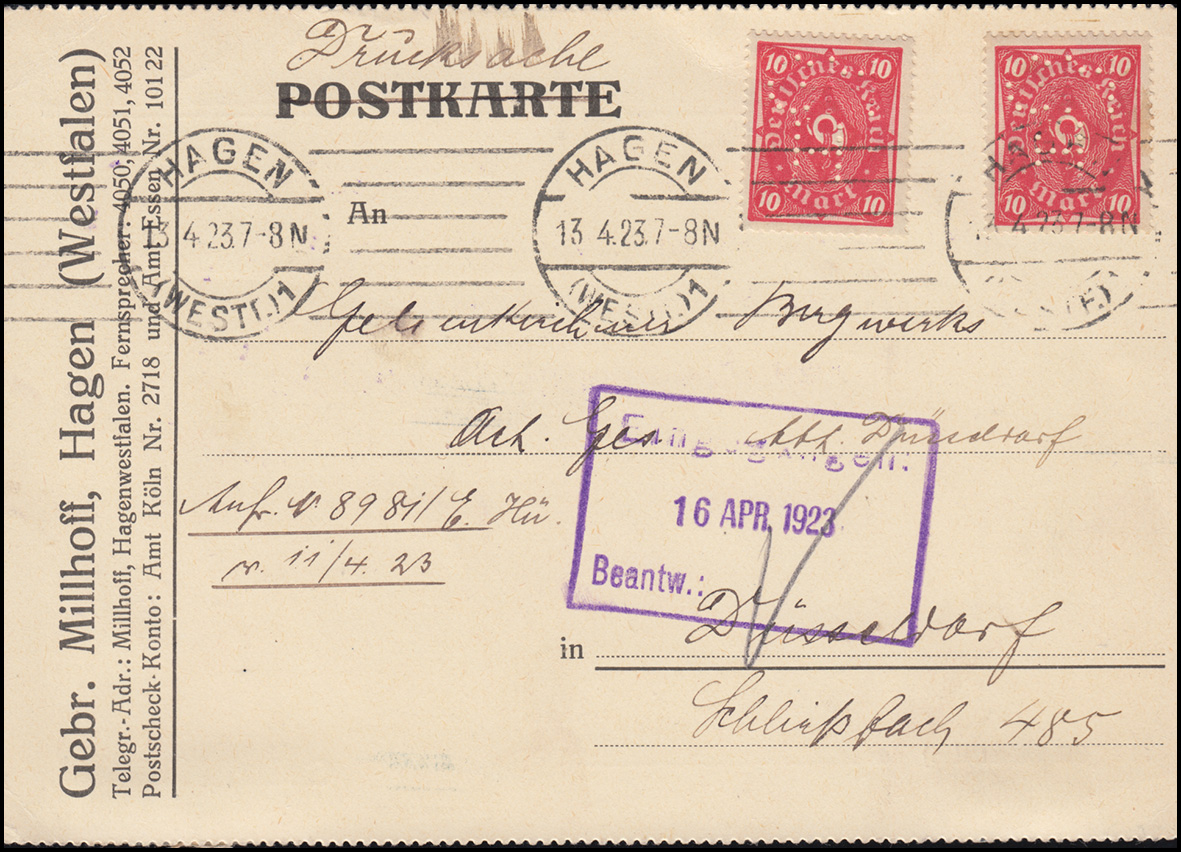 Drucksache
POSTKARTE
10 10
Deutsches Reich
Mark
10 10
10 10
Deutsches Reich
Mark
10 10
HAGEN
13 4.23.7-8N
(WESTF.)1
HAGEN
13 4.23.7-8N
(WESTF.)1
HAGEN
13 4.23.7-8N
(WESTF.)
An
Gelsenkirchener Bergwerks
Act. Ges Abt. Düsseldorf
Eingegangen.
16 APR. 1923
Beantw.:
Anfr. v 8981/E. Hü.
v. 11/4.23
in Düsseldorf
Schließfach 485
Gebr. Millhoff, Hagen (Westfalen)
Telegr.-Adr.: Millhoff, Hagenwestfalen. Fernsprecher: 4050, 4051, 4052
Postscheck-Konto: Amt Köln Nr. 2718 und Amt Essen Nr. 10122